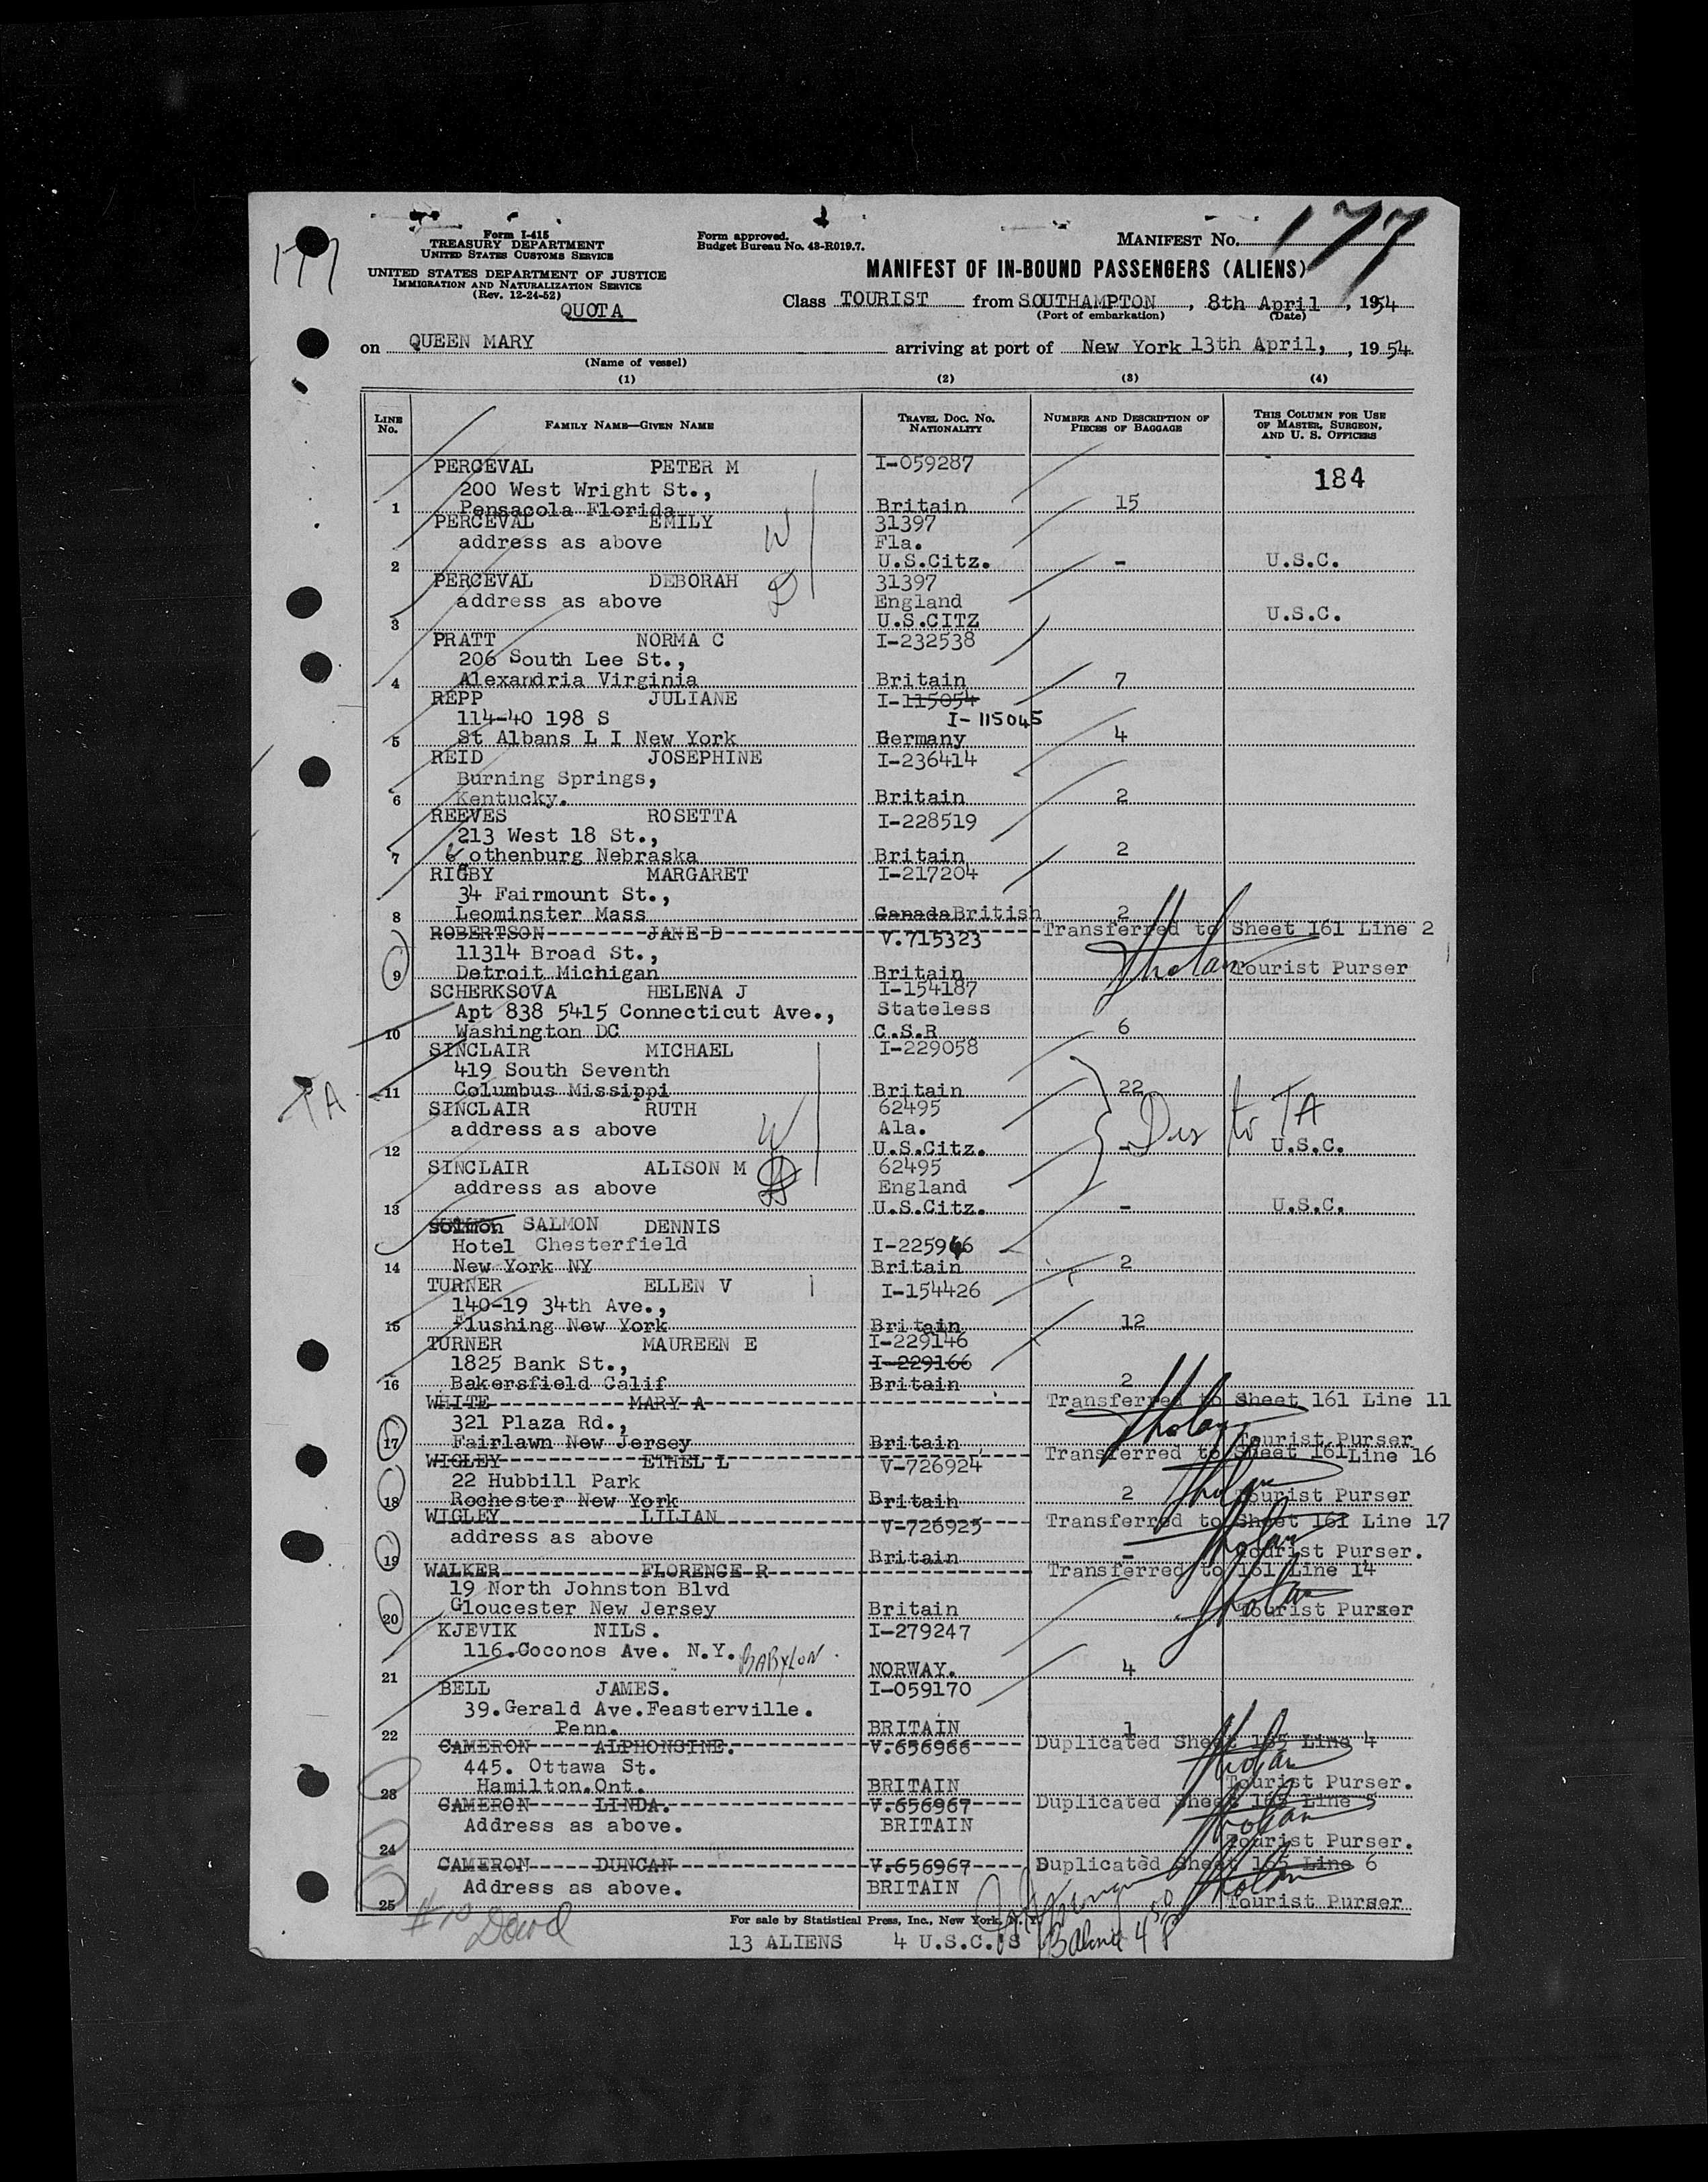 177
Form I-415
TREASURY DEPARTMENT
UNITED STATES CUSTOMS SERVICE
UNITED STATES DEPARTMENT OF JUSTICE
IMMIGRATION AND NATURALIZATION SERVICE
(Rev. 12-24-52)
QUOTA
Form approved.
Budget Bureau No. 43-R019.7.
MANIFEST No. 177
MANIFEST OF IN-BOUND PASSENGERS (ALIENS)
Class TOURIST from SOUTHAMPTON, 8th April, 1954
(Port of embarkation) (Date)
on QUEEN MARY arriving at port of New York 13th April, , 1954
(Name of vessel)
(1) (2) (3) (4)
LINE No. FAMILY NAME—GIVEN NAME TRAVEL DOC. No. NATIONALITY NUMBER AND DESCRIPTION OF PIECES OF BAGGAGE THIS COLUMN FOR USE OF MASTER, SURGEON, AND U. S. OFFICERS
PERCEVAL PETER M I-059287 184
200 West Wright St.,
1 Pensacola Florida Britain 15
PERCEVAL EMILY 31397
address as above W Fla.
2 U.S.Citz. - U.S.C.
PERCEVAL DEBORAH D 31397
address as above England
3 U.S.CITZ U.S.C.
PRATT NORMA C I-232538
206 South Lee St.,
4 Alexandria Virginia Britain 7
REPP JULIANE I-115054
114-40 198 S I-115045
5 St Albans L I New York Germany 4
REID JOSEPHINE I-236414
Burning Springs,
6 Kentucky. Britain 2
REEVES ROSETTA I-228519
213 West 18 St.,
7 Gothenburg Nebraska Britain 2
RIGBY MARGARET I-217204
34 Fairmount St.,
8 Leominster Mass Canada British 2
ROBERTSON JANE D V.715323 Transferred to Sheet 161 Line 2
11314 Broad St.,
9 Detroit Michigan Britain Tourist Purser
SCHERKSOVA HELENA J I-154187
Apt 838 5415 Connecticut Ave., Stateless
10 Washington DC C.S.R 6
SINCLAIR MICHAEL I-229058
419 South Seventh
TA 11 Columbus Missippi Britain 22
SINCLAIR RUTH 62495
address as above W Ala. to TA
12 U.S.Citz. - U.S.C.
SINCLAIR ALISON M D 62495
address as above England
13 U.S.Citz. - U.S.C.
Solmon SALMON DENNIS
Hotel Chesterfield I-225966
14 New York NY Britain 2
TURNER ELLEN V I-154426
140-19 34th Ave.,
15 Flushing New York Britain 12
TURNER MAUREEN E I-229146
1825 Bank St., I-229166
16 Bakersfield Calif Britain 2
WHITE MARY A Transferred to Sheet 161 Line 11
321 Plaza Rd.,
17 Fairlawn New Jersey Britain Tourist Purser
WIGLEY ETHEL L V-726924 Transferred to Sheet 161 Line 16
22 Hubbill Park
18 Rochester New York Britain 2 Tourist Purser
WIGLEY LILIAN V-726925 Transferred to Sheet 161 Line 17
address as above
19 Britain - Tourist Purser.
WALKER FLORENCE R Transferred to 161 Line 14
19 North Johnston Blvd
20 Gloucester New Jersey Britain Tourist Purser
KJEVIK NILS. I-279247
116.Coconos Ave. N.Y. BABYLON.
21 NORWAY. 4
BELL JAMES. I-059170
39.Gerald Ave.Feasterville.
22 Penn. BRITAIN 1
CAMERON ALPHONSINE. V.656966 Duplicated Sheet 165 Line 4
445. Ottawa St.
23 Hamilton.Ont. BRITAIN Tourist Purser.
CAMERON LINDA. V.656967 Duplicated Sheet 165 Line 5
Address as above. BRITAIN
24 Tourist Purser.
CAMERON DUNCAN V.656967 Duplicated Sheet 165 Line 6
Address as above. BRITAIN
25 Tourist Purser
For sale by Statistical Press, Inc., New York, N. Y.
13 ALIENS 4 U.S.C.'S